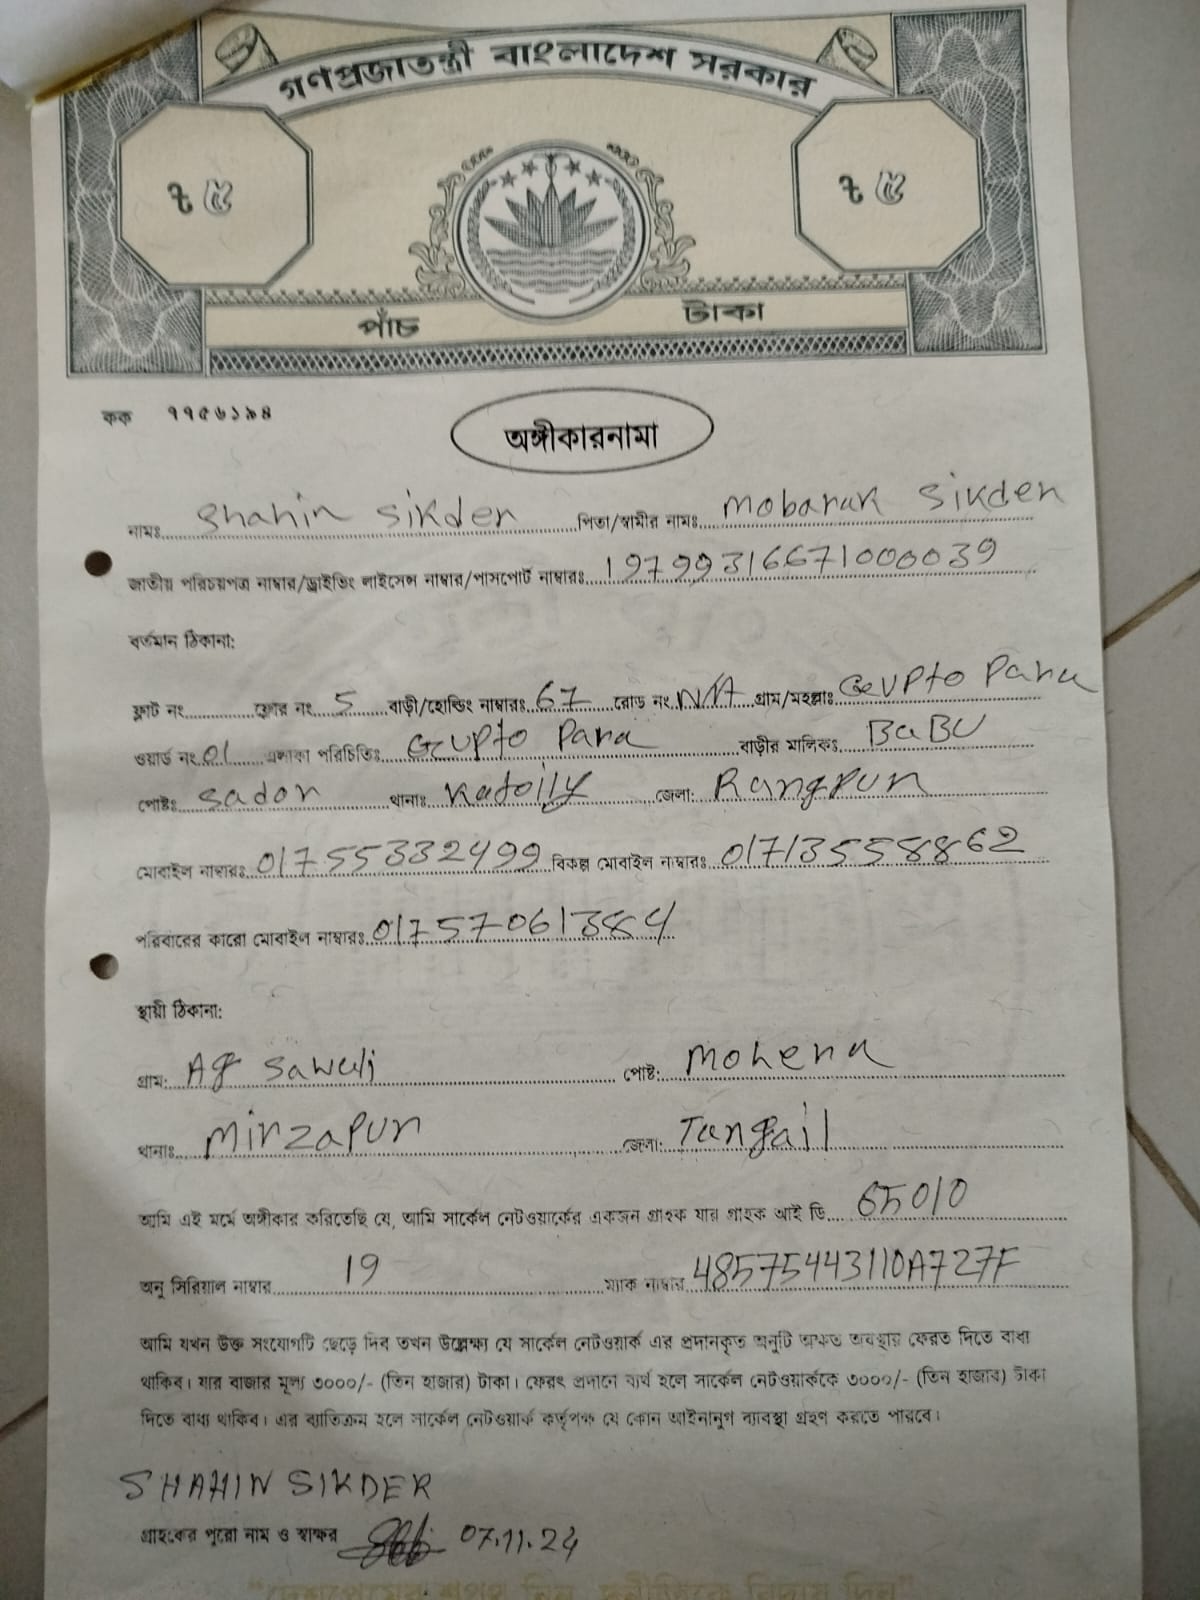 গণপ্রজাতন্ত্রী বাংলাদেশ সরকার
৳ ৫ ৳ ৫
পাঁচ টাকা
কক ৭৭৫৬১৯৪
অঙ্গীকারনামা
নামঃ Shahin Sikder পিতা/স্বামীর নামঃ Mobarak Sikder
জাতীয় পরিচয়পত্র নাম্বার/ড্রাইভিং লাইসেন্স নাম্বার/পাসপোর্ট নাম্বারঃ 19799316671000039
বর্তমান ঠিকানা:
ফ্লাট নং ফ্লোর নং 5 বাড়ী/হোল্ডিং নাম্বারঃ 67 রোড নং N/A গ্রাম/মহল্লাঃ Gupto Para
ওয়ার্ড নং 01 এলাকা পরিচিতিঃ Gupto Para বাড়ীর মালিকঃ BaBU
পোষ্টঃ Sador থানাঃ Katoily জেলা: Rangpur
মোবাইল নাম্বারঃ 01755332499 বিকল্প মোবাইল নাম্বারঃ 01713558862
পরিবারের কারো মোবাইল নাম্বারঃ 01757061384
স্থায়ী ঠিকানা:
গ্রাম: Sawali পোষ্ট: Mohera
থানাঃ Mirzapur জেলা: Tangail
আমি এই মর্মে অঙ্গীকার করিতেছি যে, আমি সার্কেল নেটওয়ার্কের একজন গ্রাহক যার গ্রাহক আই ডি 65010
অনু সিরিয়াল নাম্বার 19 ম্যাক নাম্বার 485754443110A727F
আমি যখন উক্ত সংযোগটি ছেড়ে দিব তখন উল্লেক্ষ্য যে সার্কেল নেটওয়ার্ক এর প্রদানকৃত অনুটি অক্ষত অবস্থায় ফেরত দিতে বাধ্য
থাকিব। যার বাজার মূল্য ৩০০০/- (তিন হাজার) টাকা। ফেরৎ প্রদানে ব্যর্থ হলে সার্কেল নেটওয়ার্ককে ৩০০০/- (তিন হাজার) টাকা
দিতে বাধ্য থাকিব। এর ব্যতিক্রম হলে সার্কেল নেটওয়ার্ক কর্তৃপক্ষ যে কোন আইনানুগ ব্যাবস্থা গ্রহণ করতে পারবে।
SHAHIN SIKDER
গ্রাহকের পুরো নাম ও স্বাক্ষর 07.11.24
"দেশপ্রেমের শপথ নিন, দুর্নীতিকে বিদায় দিন"